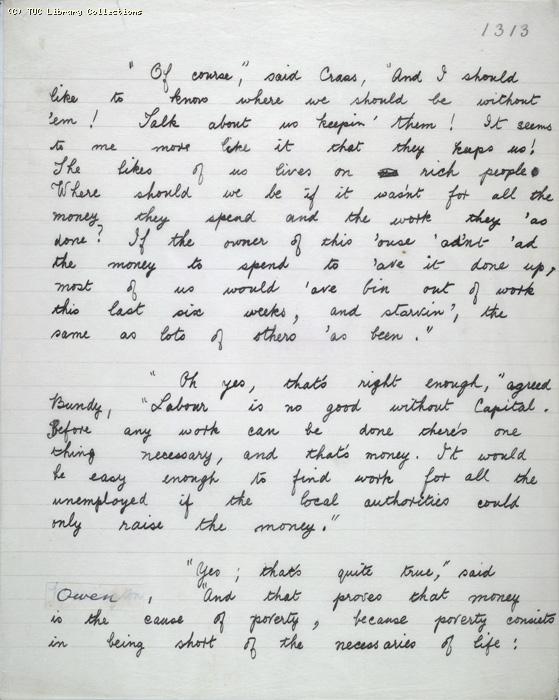 (C) TUC Library Collections
1313
"Of course," said Crass, "And I should
like to know where we should be without
'em! Talk about us keepin' them! It seems
to me more like it that they keeps us!
The likes of us lives on rich people.
Where should we be if it wasn't for all the
money they spend and the work they 'as
done? If the owner of this 'ouse 'adn't 'ad
the money to spend to 'ave it done up,
most of us would 'ave bin out of work
this last six weeks, and starvin', the
same as lots of others 'as been."
"Oh yes, that's right enough," agreed
Bundy, "Labour is no good without Capital.
Before any work can be done there's one
thing necessary, and that's money. It would
be easy enough to find work for all the
unemployed if the local authorities could
only raise the money."
"Yes; that's quite true," said
Owen, "And that proves that money
is the cause of poverty, because poverty consists
in being short of the necessaries of life: